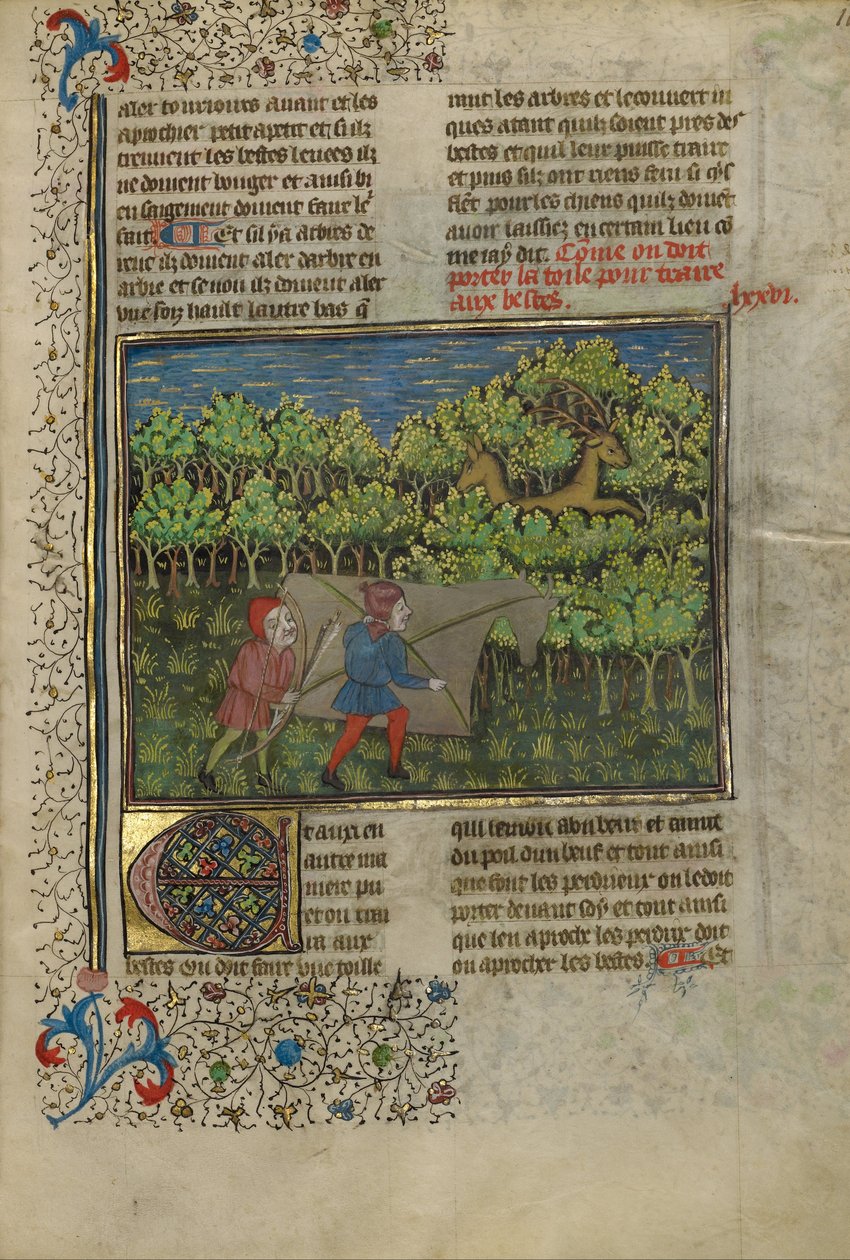 aler tousiours auant et les
aprochier petit a petit et silz
treuuent les bestes leuees ilz
ne doiuent bougier et ainsi bi
en saigement doiuent faire le
fait Et sil y a arbres de
ilz doiuent aler darbre en
arbre et se non ilz doiuent aler
lun soiz hault lautre bas
les arbres et le couuert iu
ques a tant quilz soient pres des
bestes et quil leur puisse traire
et puis silz ont riens feru si
pour les chiens quilz doiuent
auoir laissiez en certain lieu co
me iay dit. Cõme on doit
porter la toile pour traire
aux bestes.
.lxxvi.
E t aussi en
autre ma
niere pu
et on trai
re aux
bestes On doit faire vne toille
qui ait et
du poil dun beuf et tout ainsi
que font les perdrieux on le doit
porter deuant soy et tout ainsi
que len aproche les perdrix doit
on aprocher les bestes. Et